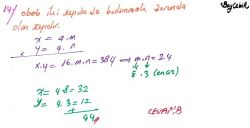 14) obeb iki sayıda da bulunmak zorunda
olan sayıdır.
x = 4.m
x y = 4.n
x.y = 16.m.n = 384 → m.n = 24
8.3 (en az)
x = 4.8 = 32
y = 4.3 = 12
+
44
CEVAP: B